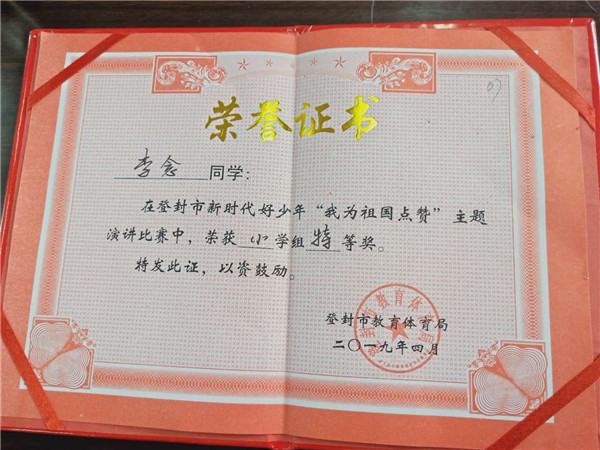 荣誉证书
李念 同学：
在登封市新时代好少年“我为祖国点赞”主题
演讲比赛中，荣获 小 学组 特 等奖。
特发此证，以资鼓励。
登封市教育体育局
二〇一九年四月